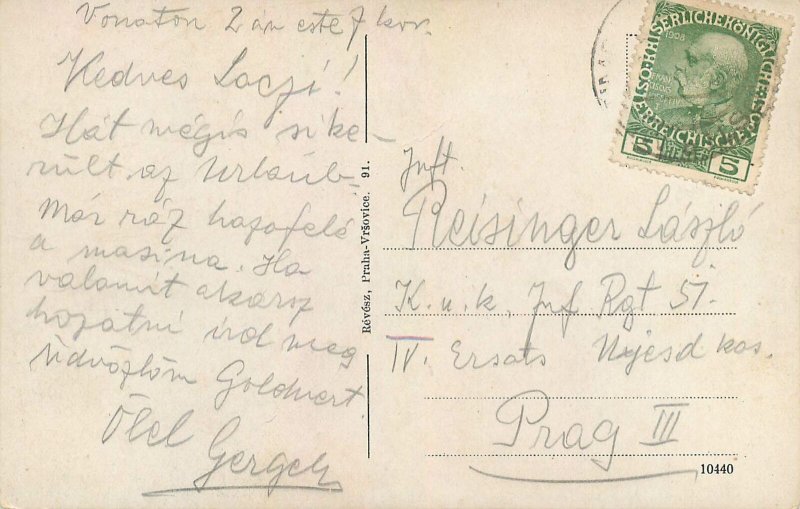 Vonaton 2 án este 7 kor.
Kedves Laczi!
Hát mégis sike-
rült az Urlaub-
Már ráz hazafelé
a masina. Ha
valamit akarsz
hozatni írd meg
Üdvözlöm Goldnert.
Ölel
Gergely
Révész, Praha-Vršovice. 91.
KAISERLICHEKÖNIGLICHE
ÖSTERREICHISCHE POST
1908
5 HELLER 5
Inft.
Reisinger László
K. u. k. Inf Rgt 51.
IV. Ersats Ujesd kas.
Prag III
10440